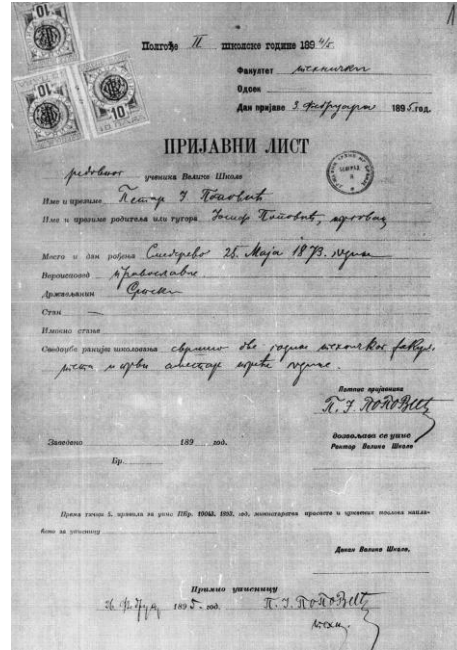 10
10
10
Полгође II школске године 1894/5.
Факултет технички
Одсек
Дан пријаве 3. фебруара 1895 год.
ПРИЈАВНИ ЛИСТ
редовног ученика Велике Школе
Име и презиме Петар Ј Поповић
Име и презиме родитеља или тутора Поповић, трговац
Место и дан рођења Смедерево 25. Маја 1873. године
Вероисповед православне
Држављанин Српски
Стан
Имовно стање
Сведоџбе ранијег школовања свршио две године техничког факул-
тета и први семестар треће године.
Потпис пријавника
П. Ј. Поповић
Заведено 189 год.
Бр.
дозвољава се упис
Ректор Велике Школе
Према тачци 5. правила за упис ПБр. 1893. год. министарства просвете и црквених послова напла-
ћено за уписницу
Декан Велике Школе,
Примио уписницу
1895 год.
П. Ј. Поповић
техн.